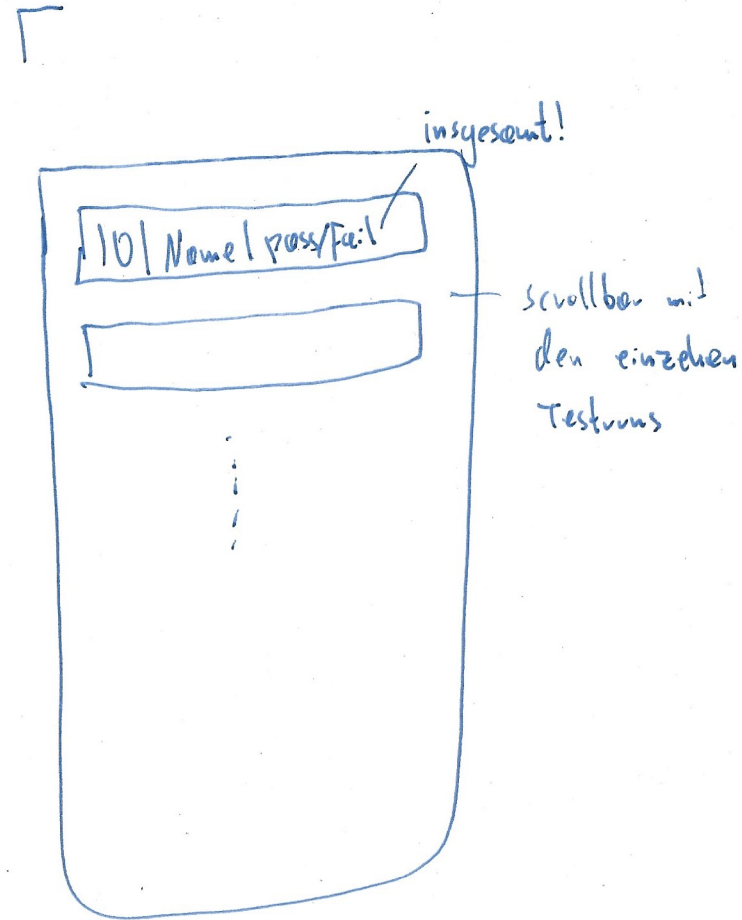 insgesamt!
|ID| Name| pass/Fail
scrollbar mit
den einzelnen
Testruns